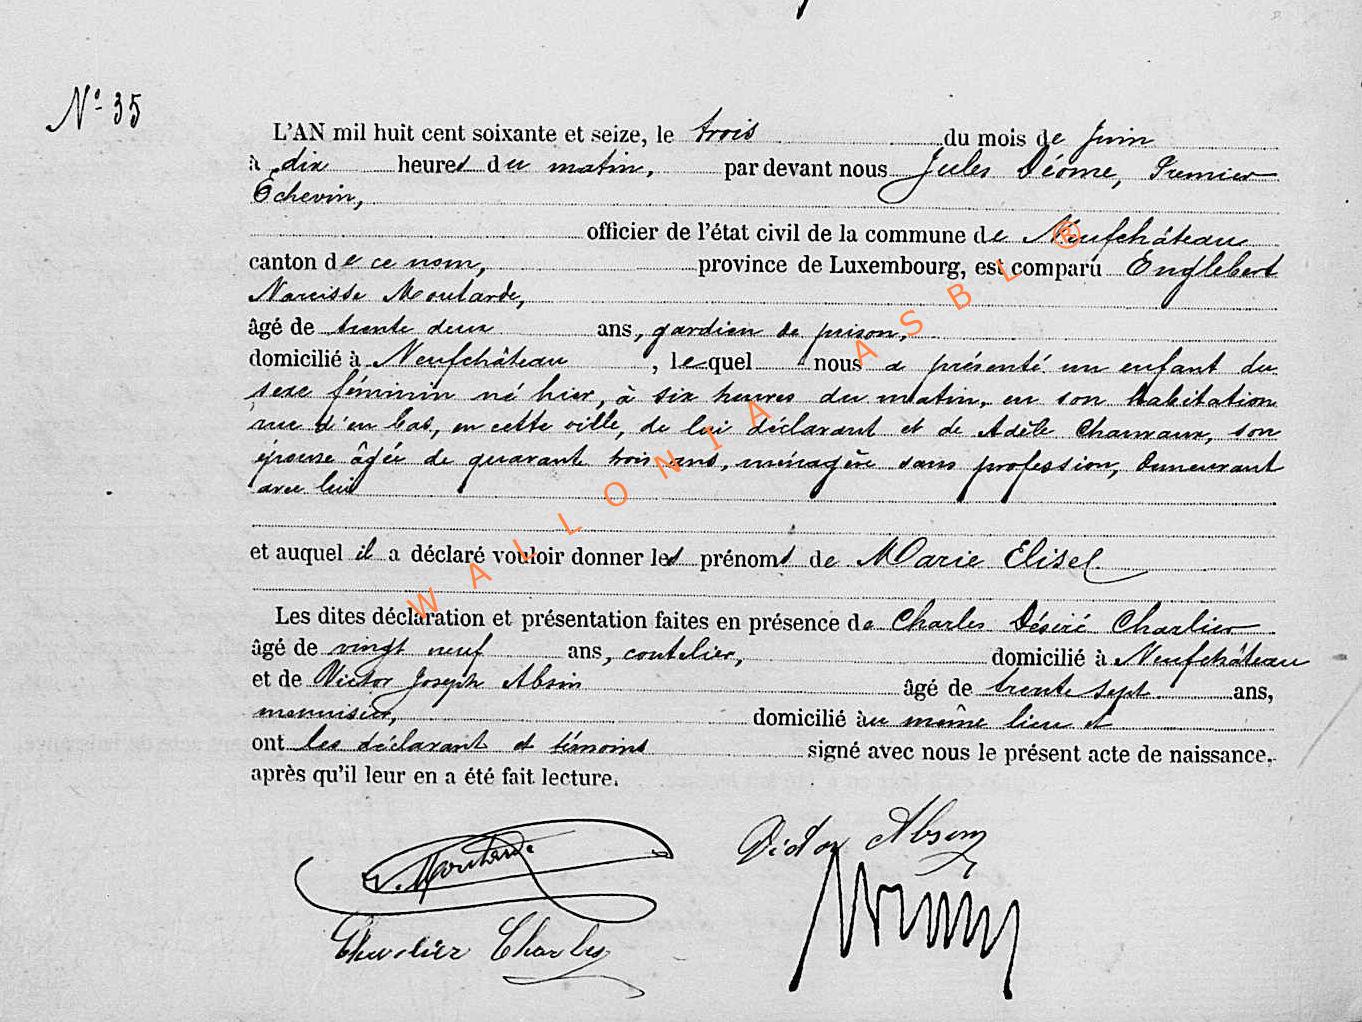 N° 35
L'AN mil huit cent soixante et seize, le trois du mois de Juin
à dix heures du matin, par devant nous Jules Déome, Premier
Echevin,
officier de l'état civil de la commune de Neufchâteau
canton de ce nom, province de Luxembourg, est comparu Englebert
Narcisse Moutarde,
âgé de trente deux ans, gardien de prison,
domicilié à Neufchâteau, lequel nous a présenté un enfant du
sexe féminin né hier, à six heures du matin, en son habitation
rue d'en bas, en cette ville, de lui déclarant et de Adèle son
épouse âgée de quarante trois ans, ménagère sans profession, demeurant
avec lui
et auquel il a déclaré vouloir donner les prénoms de Marie Elise
Les dites déclaration et présentation faites en présence de Charles Désiré Charlier
âgé de vingt neuf ans, coutelier, domicilié à Neufchâteau
et de Victor Joseph Absin âgé de trente sept ans,
menuisier, domicilié au même lieu et
ont les déclarant et témoins signé avec nous le présent acte de naissance,
après qu'il leur en a été fait lecture.
Victor Absin
Moutarde
Charles
WALLONIA ASBL ®